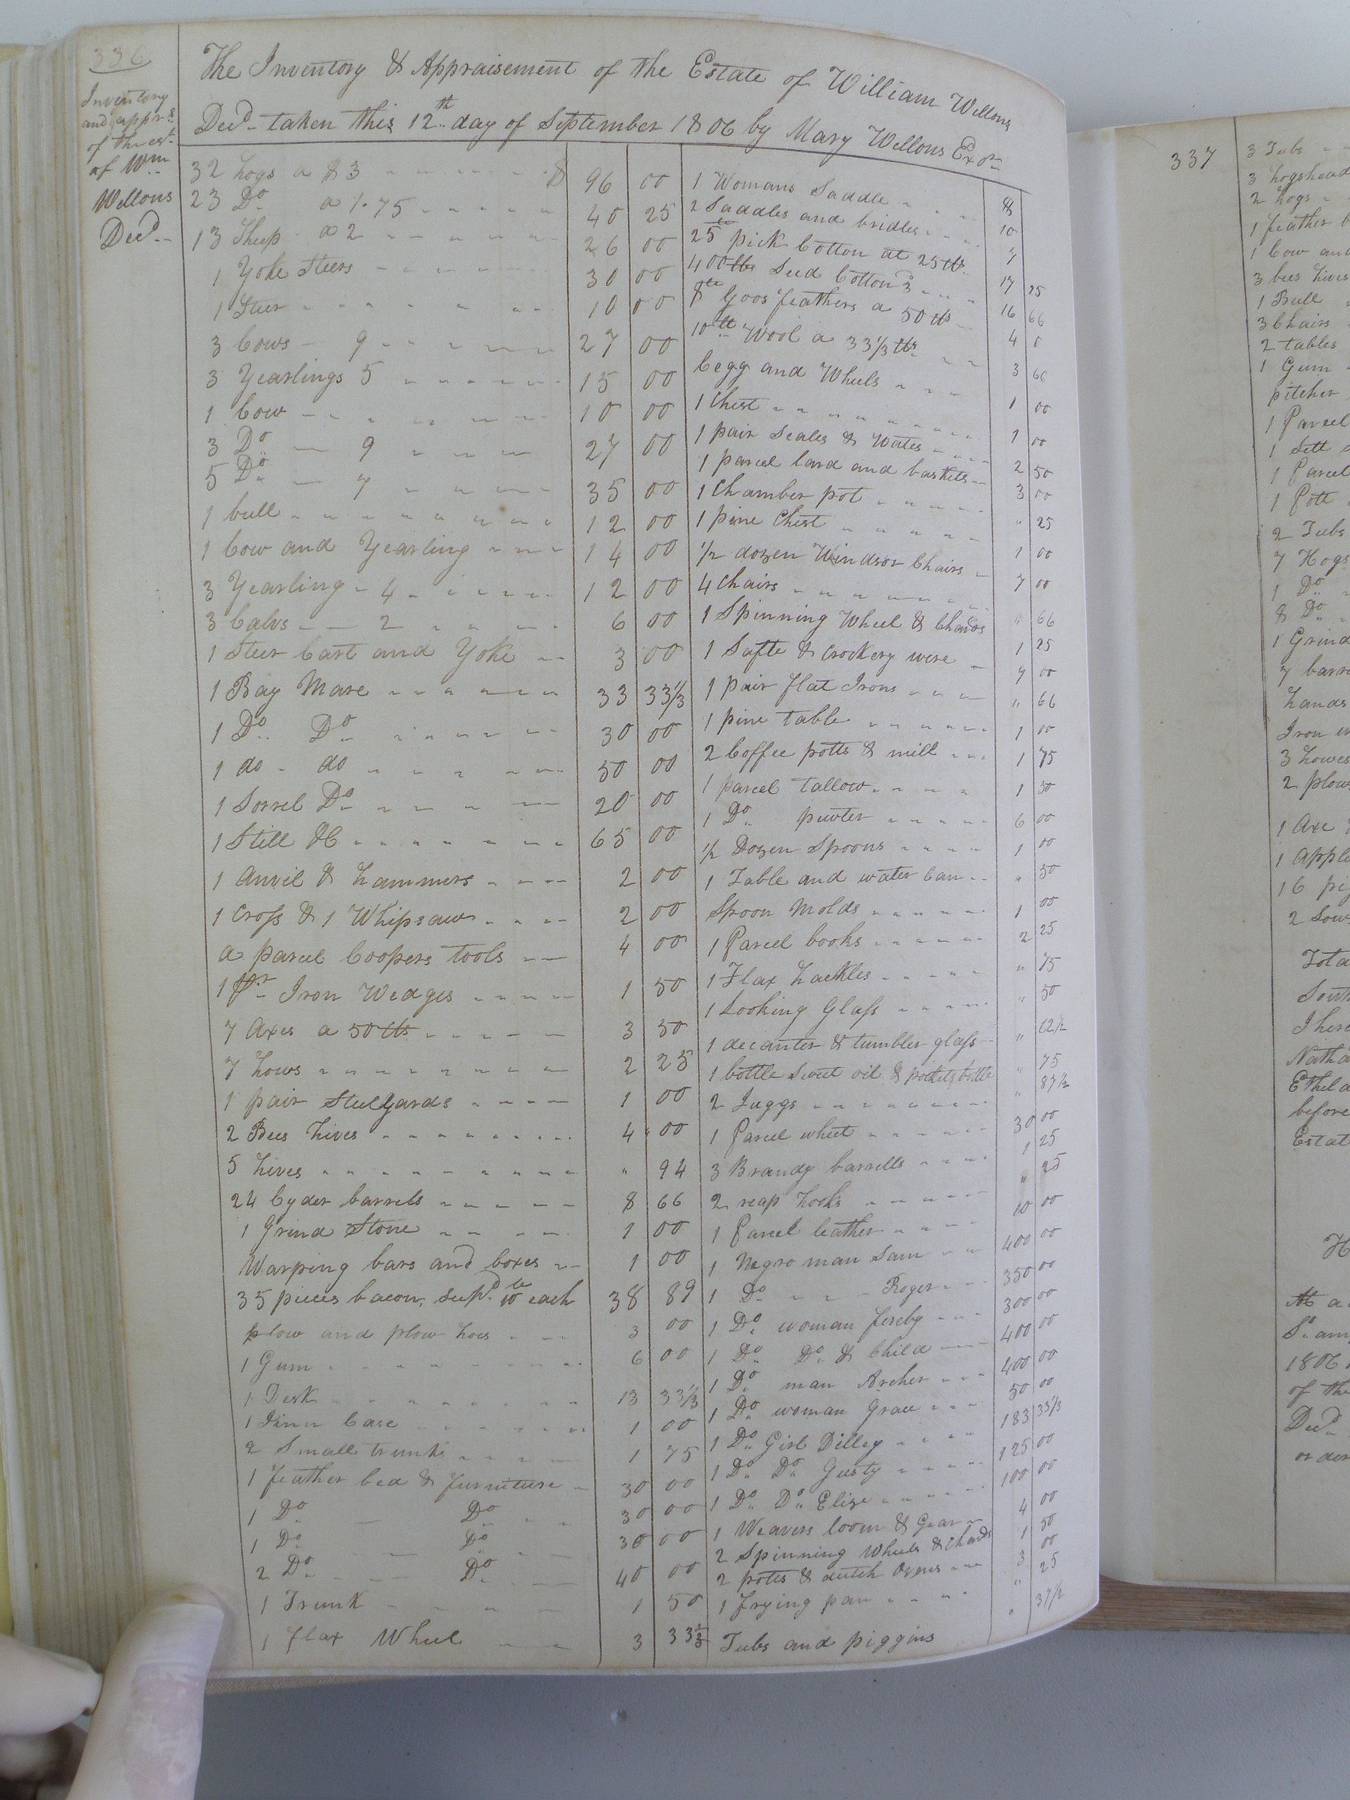 336
Inventory
and appr.
of the est.
of Wm
Wellons
Decd.
The Inventory & Appraisement of the Estate of William Wellons
Decd. taken this 12th day of September 1806 by Mary Wellons Exor
32 hogs a $3 $ 96 00
23 Do a 1.75 40 25
13 Sheep a 2 26 00
1 Yoke Steers 30 00
1 Steer 10 00
3 Cows 9 27 00
3 Yearlings 5 15 00
1 Cow 10 00
3 Do 9 27 00
5 Do 7 35 00
1 bull 12 00
1 Cow and Yearling 14 00
3 Yearling 4 12 00
3 Calvs 2 6 00
1 Steer Cart and Yoke 3 00
1 Bay Mare 33 33 1/3
1 Do Do 30 00
1 do do 50 00
1 Sorrel Do 20 00
1 Still &C 65 00
1 Anvil & hammers 2 00
1 Cross & 1 Whipsaw 2 00
a parcel Coopers tools 4 00
1 pr Iron Wedges 1 50
7 Axes a 50 cts 3 50
7 hows 2 25
1 pair Steelyards 1 00
2 Bees hives 4 00
5 hives " 94
24 Cyder barrels 8 66
1 Grind Stone 1 00
Warping bars and boxes 1 00
35 pieces bacon, each 38 89
plow and plow hoes 3 00
1 Gum 6 00
1 Desk 13 33 1/3
1 Case 1 00
2 Small trunks 1 75
1 feather bed & furniture 30 00
1 Do Do 30 00
1 Do Do 30 00
2 Do Do 40 00
1 Trunk 1 50
1 flax Wheel 3 33 1/3
1 Womans Saddle 8
2 Saddles and bridles 10
25 pick Cotton at 25 cts 7
400 lbs Seed Cotton 3 17 25
8 lb Goos feathers a 50 cts 16 66
10 lb Wool a 33 1/3 cts 4 0
Cegg and Wheels 3 66
1 Chest 1 00
1 pair Scales & Wates 1 00
1 parcel lard and baskets 2 50
1 Chamber pot 3 00
1 pine Chest " 25
1/2 dozen Windsor Chairs 1 00
4 Chairs 7 00
1 Spinning Wheel & Chards " 66
1 Safte & crockery were 1 25
1 pair flat Irons 7 00
1 pine table " 66
2 Coffee potts & mill 1 00
1 parcel tallow 1 75
1 Do pewter 1 50
1/2 Dozen Spoons 6 00
1 Table and water Can 1 00
Spoon Molds " 50
1 Parcel books 1 00
1 Flax hackles 2 25
1 Looking Glass " 75
1 decanter & tumbler glass " 50
1 bottle sweet oil & pockety bottle " 62 1/2
2 Juggs " 75
1 Parcel wheet " 87 1/2
3 Brandy barrells 30 00
2 reap hooks 1 25
1 Parcel leather " 25
1 Negro man Sam 10 00
1 Do Roger 400 00
1 Do woman fereby 350 00
1 Do Do & Child 300 00
1 Do man Archer 400 00
1 Do woman Grace 400 00
1 Do Girl Dilley 50 00
1 Do Do Gusty 183 33 1/3
1 Do Do Elize 125 00
1 Weavers loom & Gear 100 00
2 Spinning Wheels & Chards 4 00
2 potts & dutch Ovens 1 50
1 frying pan 3 00
Tubs and piggins " 25
" 37 1/2
337
3 Tubs
3 hogshead
2 hogs
1 feather
1 Cow and
3 bees hives
1 Bull
3 Chairs
2 tables
1 Gum
pitcher
1 Parcel
1 Sett
1 Parcel
1 Pott
2 Tubs
7 Hogs
1 Do
8 Do
1 Grind
7 barre
hands
Iron
3 howes
2 plow
1 Axe
1 Apple
16 pig
2 Sow
Tota
South
I here
Natha
Ethel
before
Estat
1806
of the
Decd